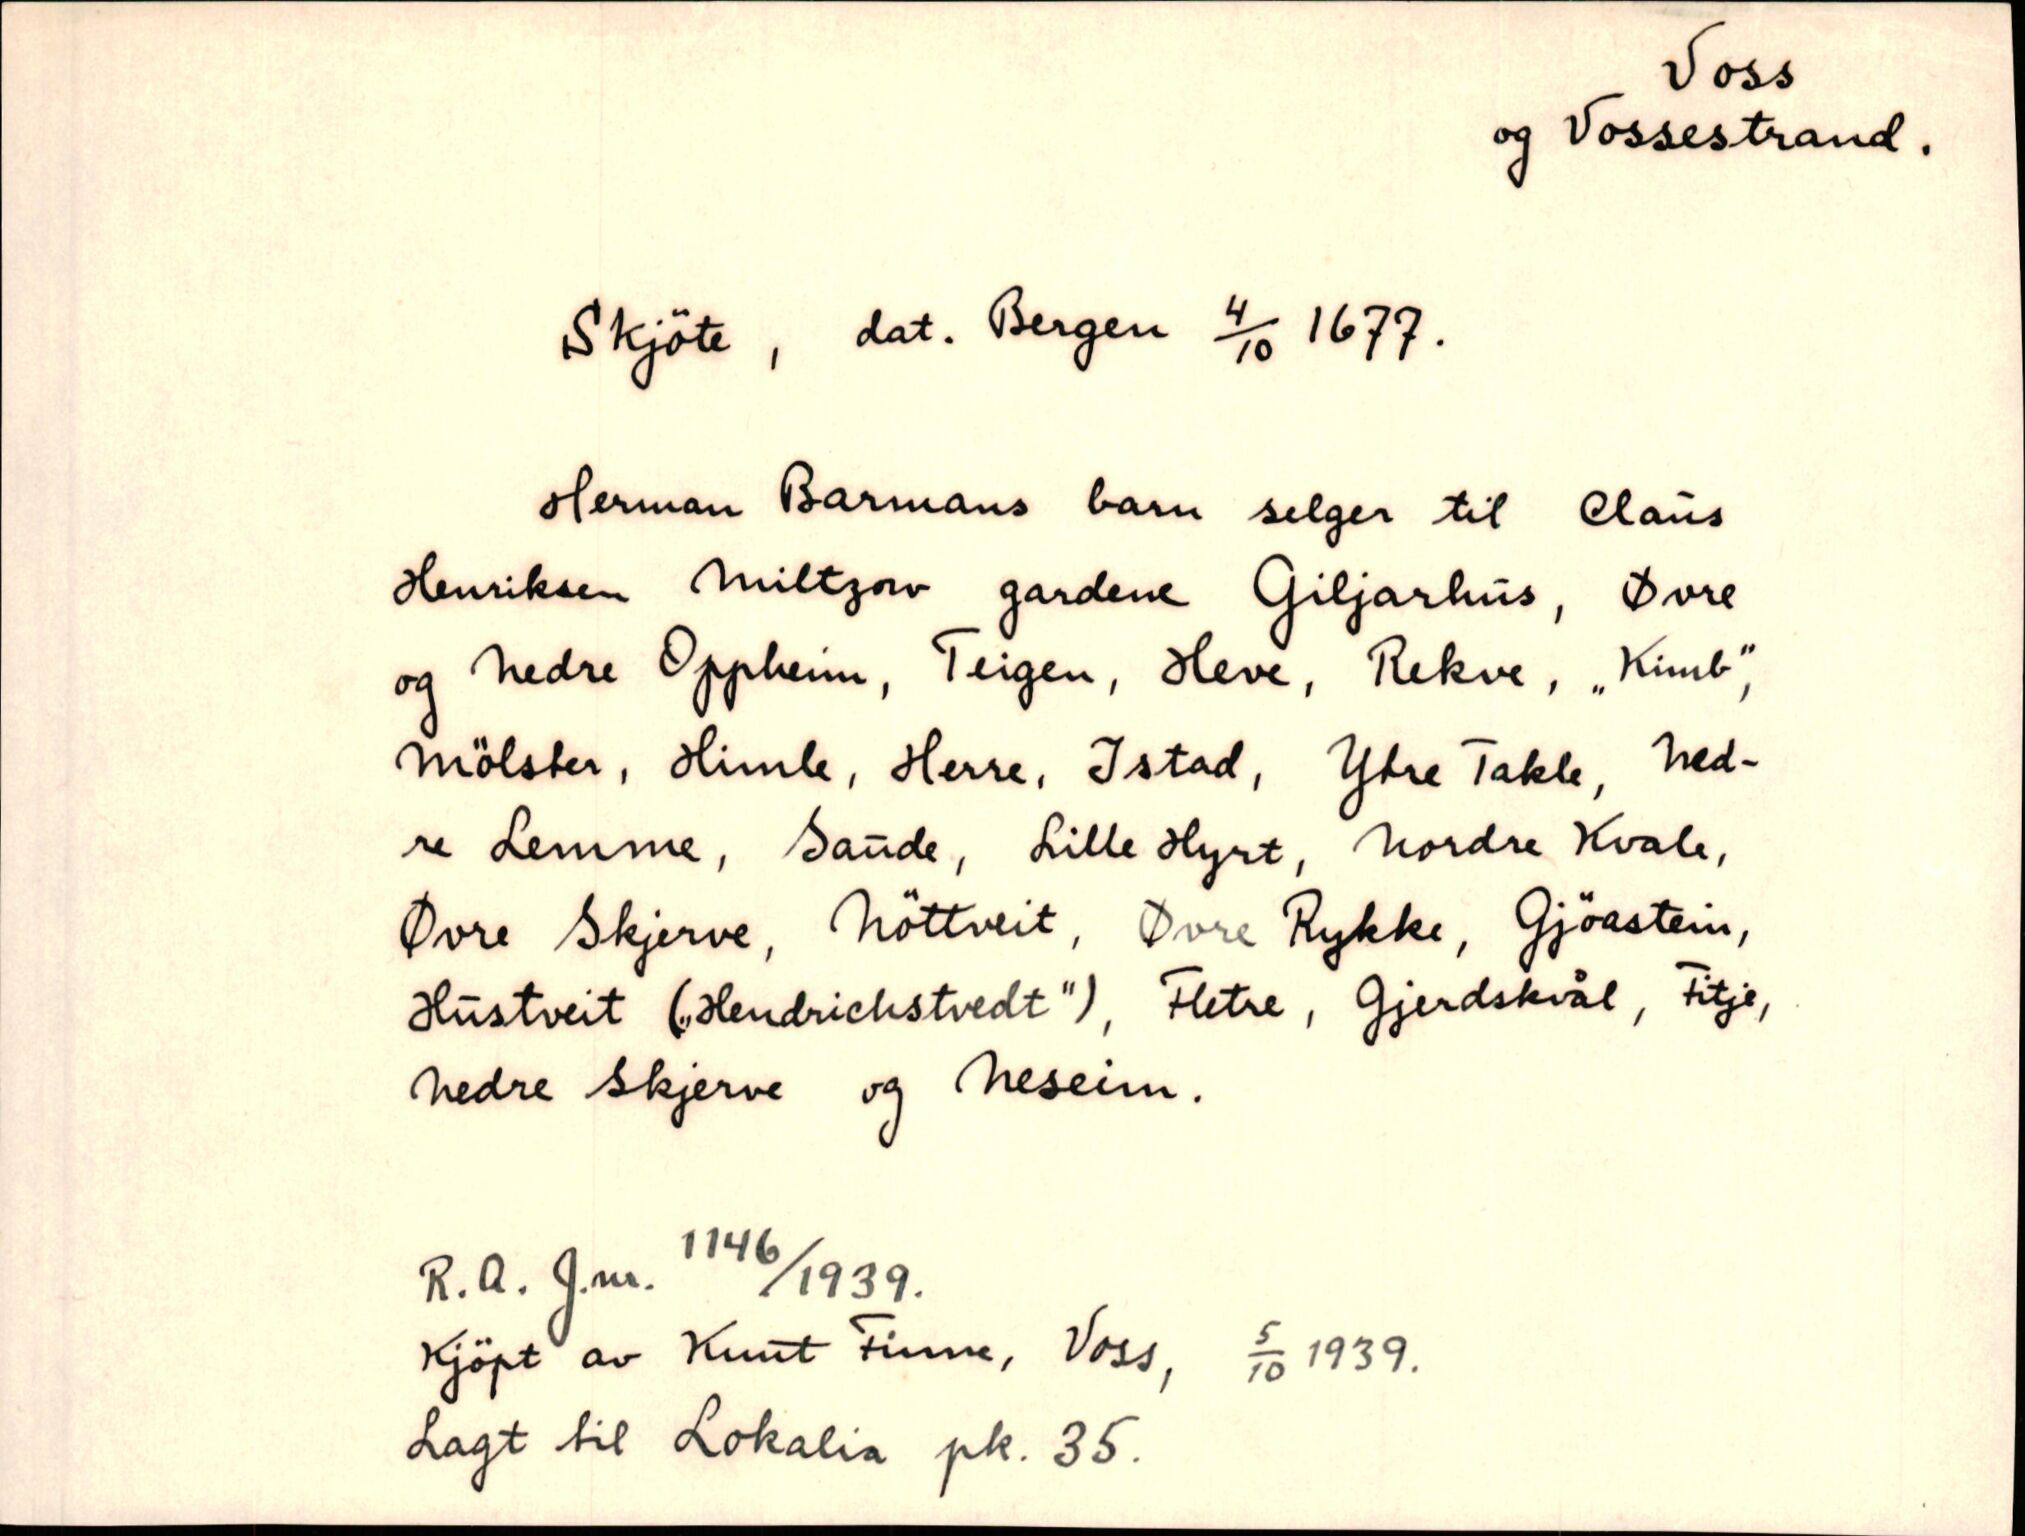 Voss
og Vossestrand.
Skjöte, dat. Bergen 4/10 1677.
Herman Barmans barn selger til Claus
Henriksen Miltzow gardene Giljarhus, Øvre
og Nedre Oppheim, Teigen, Heve, Rekve, „Kimb",
Mölster, Himle, Herre, Istad, Ytre Takle, Ned-
re Lemme, Saude, Lille Hyrt, Nordre Kvale,
Øvre Skjerve, Nöttveit, Øvre Rykke, Gjöastein,
Hustveit („Hendrichstvedt"), Fletre, Gjerdskvål, Fitje,
Nedre Skjerve og Neseim.
R.A. J.nr. 1146/1939.
Kjöpt av Knut Finne, Voss, 5/10 1939.
Lagt til Lokalia pk. 35.